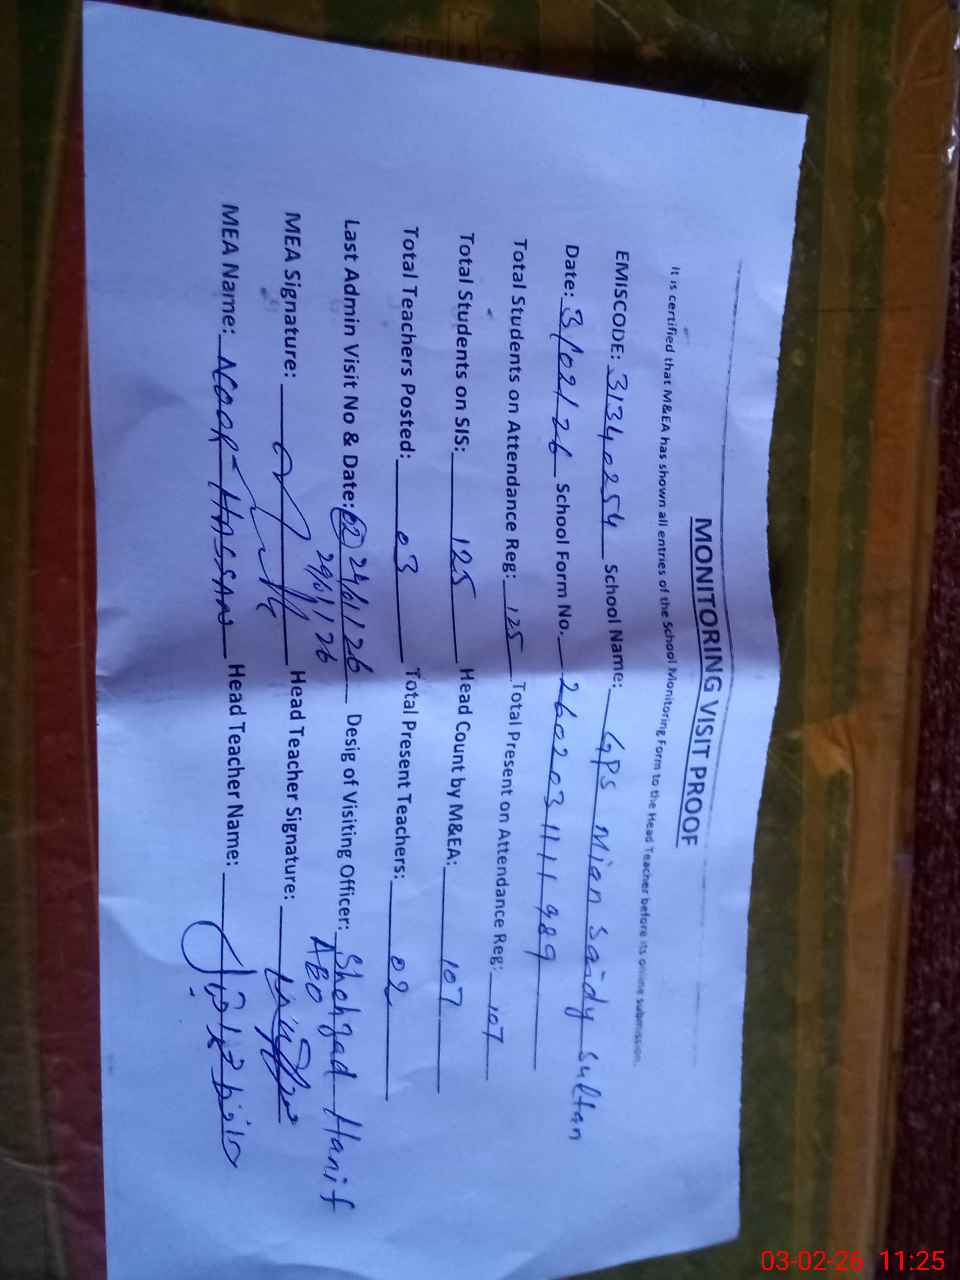 MONITORING VISIT PROOF
It is certified that M&EA has shown all entries of the School Monitoring Form to the Head Teacher before its online submission.
EMISCODE: 31340254 School Name: GPS Mian Saindy Sultan
Date: 3/02/26 School Form No. 2602031111989
Total Students on Attendance Reg: 125 Total Present on Attendance Reg: 107
Total Students on SIS: 125 Head Count by M&EA: 107
Total Teachers Posted: 03 Total Present Teachers: 02
Last Admin Visit No & Date: 02 Desig of Visiting Officer: Shehzad Hanif
29/01/26 AEO
MEA Signature: Head Teacher Signature:
MEA Name: NOOR HASSAN Head Teacher Name:
03-02-26 11:25